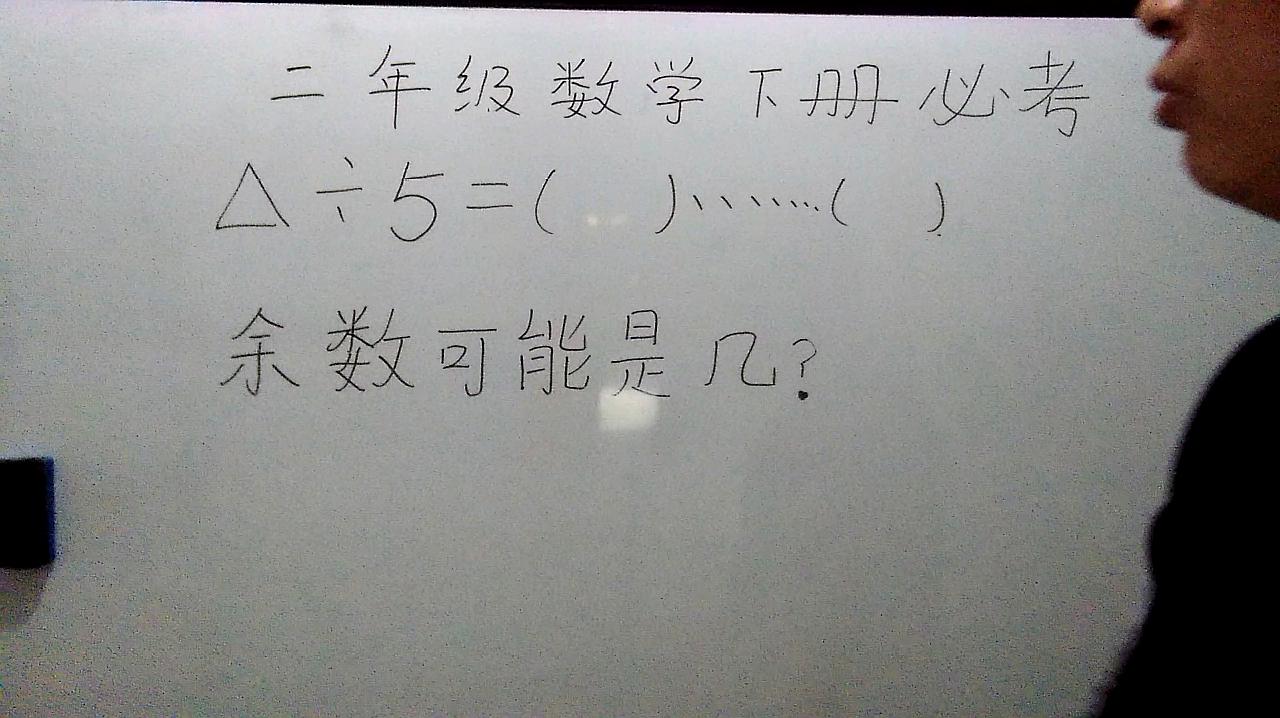 二年级数学下册必考
△÷5=( )……( )
余数可能是几?